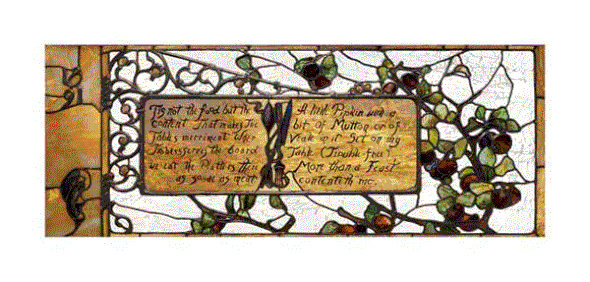 Tis not the food but the
content That makes The
Tables merriment Wher
the board
we eat the
as meat
A Pipkin with a
bit of Mutton or of
Veal in it Set on my
Table (Trouble free)
More than a Feast
contenteth me.